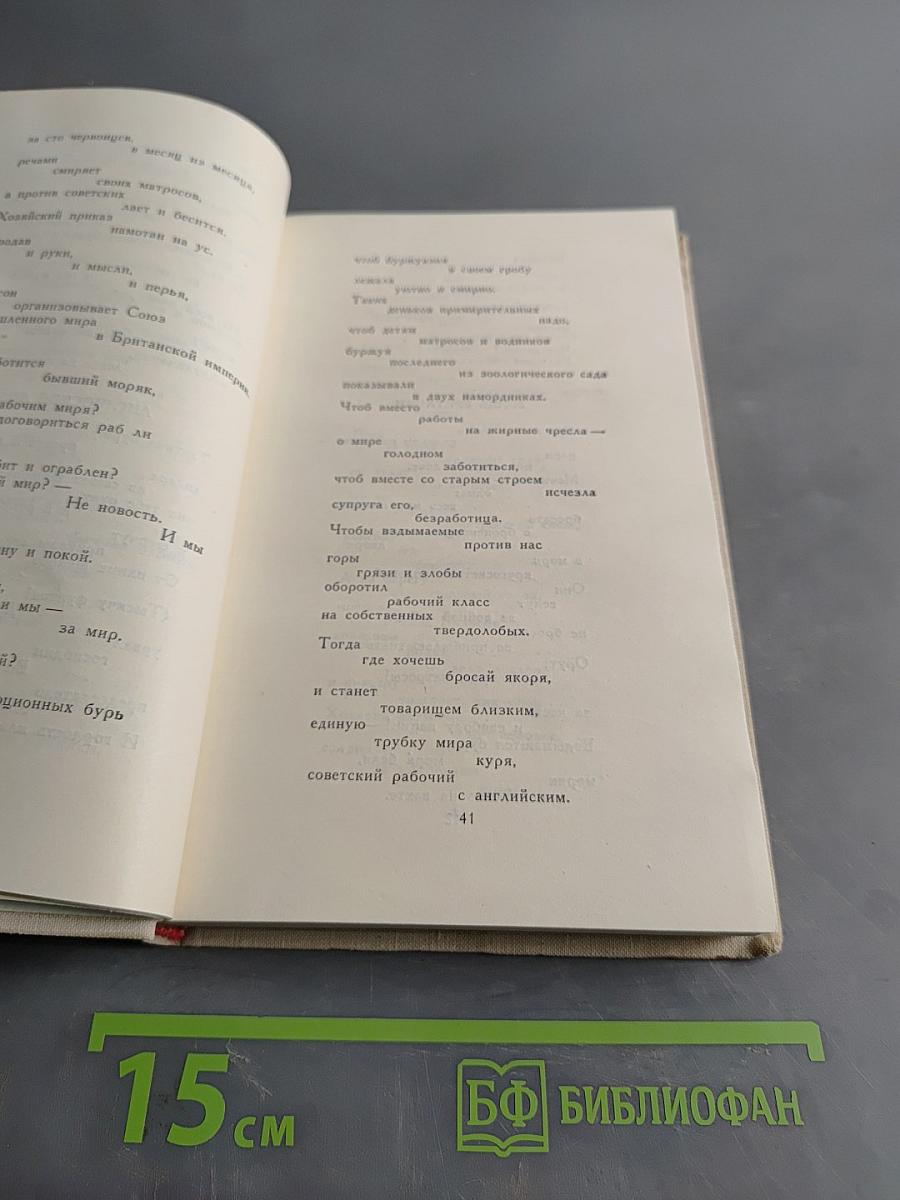 за сто червонцев,
в месяц из месяца,
речами
смиряет
своих матросов,
а против советских
лает и бесится.
Хозяйский приказ
намотан на ус.
и руки,
и мысли,
и перья,
организовывает Союз
мира
в Британской империи.
бывший моряк,
миря?
договориться раб ли
и ограблен?
мир? —
Не новость.
И мы
и покой.
и мы —
за мир.
бурь
чтоб буржуазия
в своем гробу
лежала
уютно и смирно.
Таких
деньков примирительных
надо,
чтоб детям
матросов и водников
буржуя
последнего
из зоологического сада
показывали
в двух намордниках.
Чтоб вместо
работы
на жирные чресла —
о мире
голодном
заботиться,
чтоб вместе со старым строем
исчезла
супруга его,
безработица.
Чтобы вздымаемые
против нас
горы
грязи и злобы
оборотил
рабочий класс
на собственных
твердолобых.
Тогда
где хочешь
бросай якоря,
и станет
товарищем близким,
единую
трубку мира
куря,
советский рабочий
с английским.
41
15 см
БФ БИБЛИОФАН